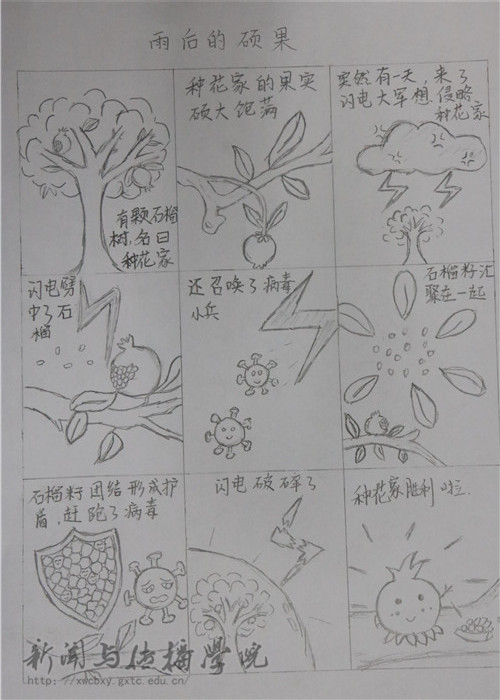 雨后的硕果
有颗石榴
树,名曰
种花家
种花家的果实
硕大饱满
突然有一天,来了
闪电大军想侵略
种花家
闪电劈
中了石
榴
还召唤了病毒
小兵
石榴籽汇
聚在一起
石榴籽团结形成护
盾,赶跑了病毒
闪电破碎了
种花家胜利啦.
新闻与传播学院
http://xwcbxy.gxtc.edu.cn/